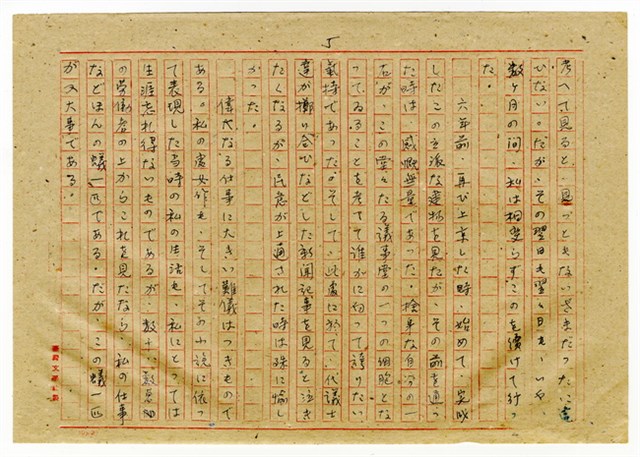 5
考へて見ると、見っともないざまだったに違
ひない。だが、その翌日も翌々日も、いや、
数ヶ月の間、私は相変らずこのを続けて行っ
た。
六年前、再び上京した時、始めて、完成
したこの立派な建物を見たが、その前を通っ
た時は、感慨無量であった。 な自分の一
石が、この堂々たる議事堂の一つの細胞とな
ってゐることを考へて誰かに向って誇りたい
気持であった。そして、此処に於て、代議士
達が擲り合ひなどした新聞記事を見ると泣き
たくなるが、民意が上通された時は殊に愉し
かった。
偉大なる仕事に大きい難儀はつきもので
ある。私の処女作も、そしてその小説に依っ
て表現した当時の私の生活も、私にとっては
生涯忘れ得ないものであるが、数十 数万
の労働者の上からこれを見たなら、私の仕事
などほんの蟻一匹である。だが、この蟻一匹
が又大事である。